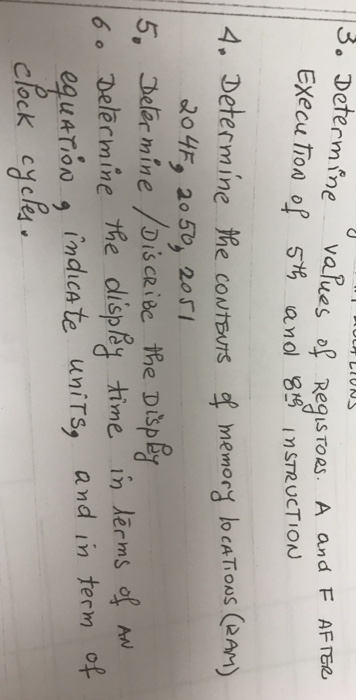 3. Determine values of Registors. A and F AFTER
Execution of 5th and 8th INSTRUCTION
4. Determine the contents of memory locations (RAM)
204F, 2050, 2051
5. Determine / Discribe the Display
6. Determine the display time in terms of AN
equation, indicate units, and in term of
clock cycles.